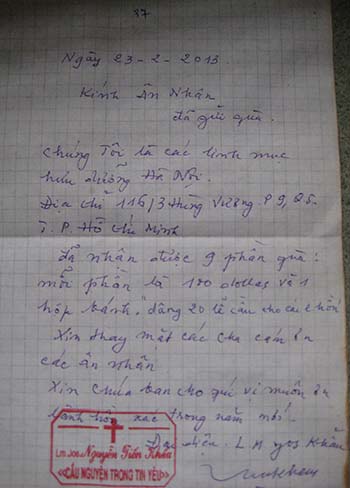 37
Ngày 23-2-2013.
Kính Ân Nhân
đã gửi quà.
Chúng Tôi là các linh mục
hưu dưỡng Hà Nội.
Địa chỉ 116/3 Hùng Vương P9, Q5.
T.P. Hồ Chí Minh
đã nhận được 9 phần quà:
mỗi phần là 100 dollas và 1
hộp bánh. dâng 20 lễ cầu cho các
Xin thay mặt các cha cám ơn
các ân nhân
Xin chúa ban cho quí vị muôn ơn
lành hồn xác trong năm mới.
Đại diện. LM
LM.JOB. Nguyễn Tiến Khẩu
«CẦU NGUYỆN TRONG TIN YÊU»